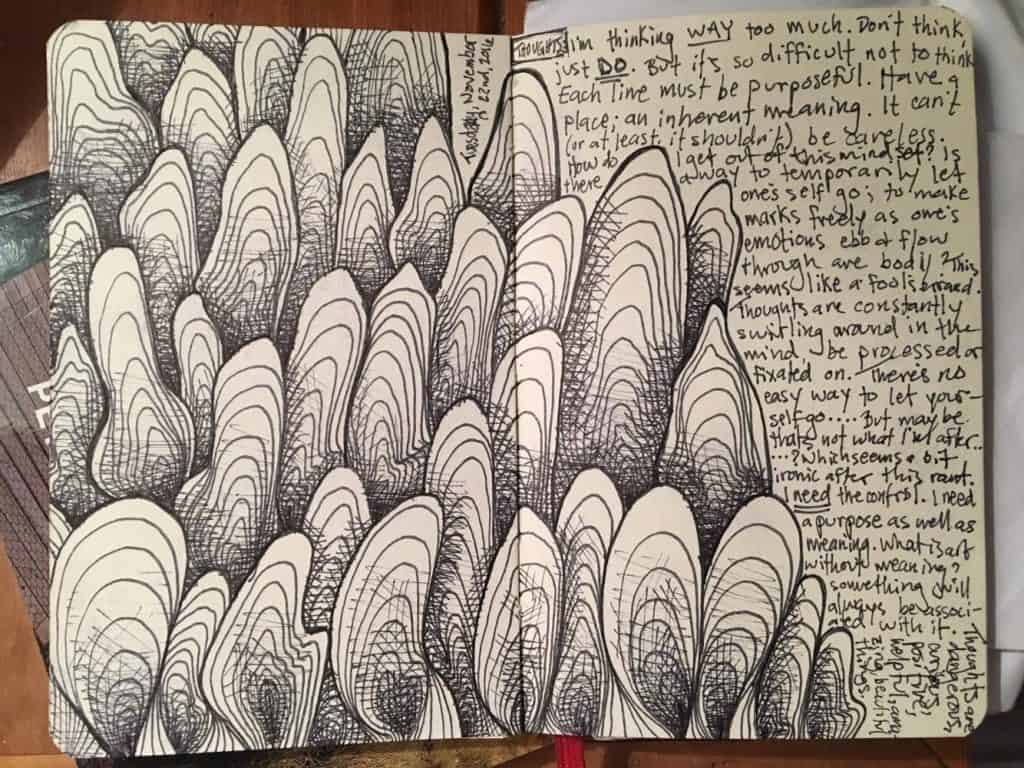 Tuesday, November
22nd, 2016
THOUGHTS: I'm thinking WAY too much. Don't think,
just DO. But it's so difficult not to think
Each line must be purposeful. Have a
place; an inherent meaning. It can't
(or at least, it shouldn't) be careless.
How do I get out of this mindset? Is
there a way to temporarily let
one's self go; to make
marks freely as one's
emotions ebb & flow
through are body? This
seems like a fools
Thoughts are constantly
swirling around in the
mind, be processed or
fixated on. There's no
easy way to let your-
self go..... But maybe
thats not what I'm after..
...? Which seems a bit
ironic after this rant.
I need the control. I need
a purpose as well as
meaning. What is art
without meaning?
something will
always be associ-
ated with it.
Thoughts are
dangerous
positive,
helpful, ama-
zing beautiful
things.
PE